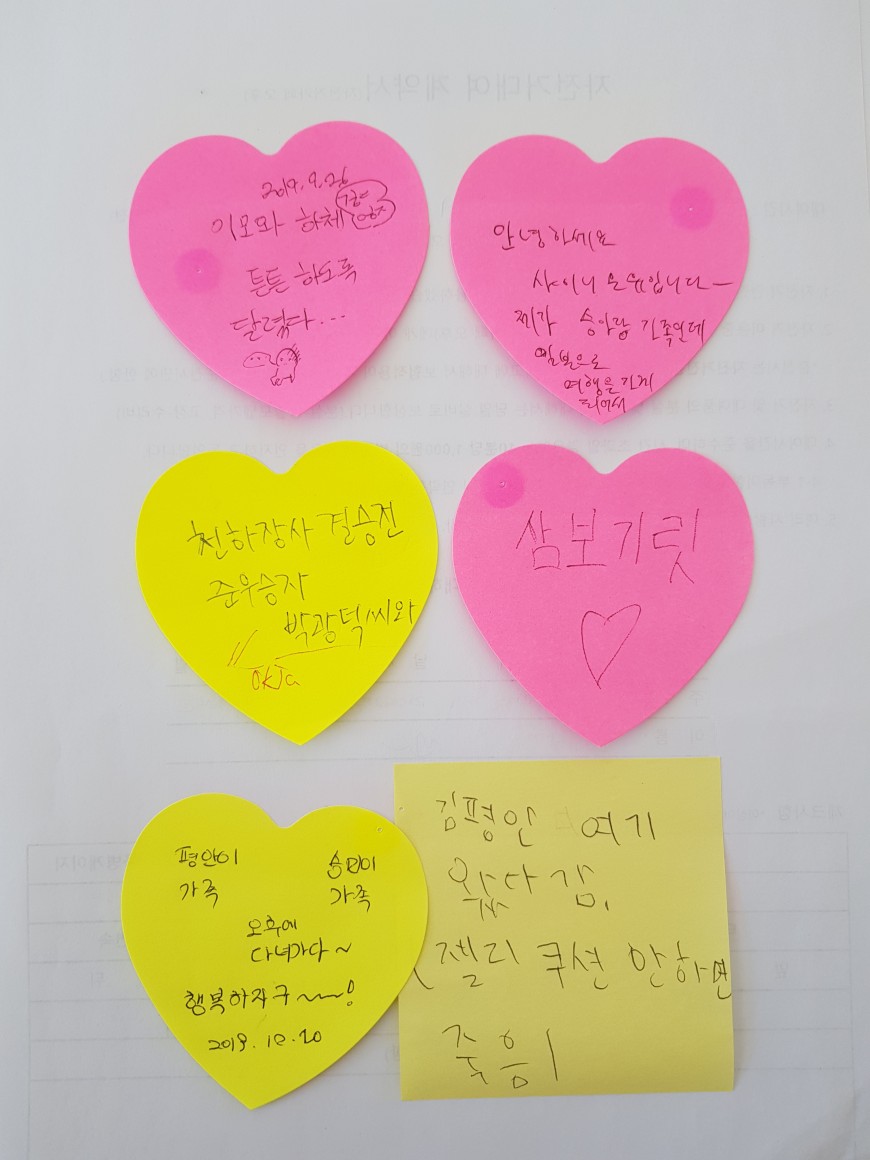 2019.9.26
이모와 하체
튼튼 하도록
달렸다...
안녕하세요
샤이니 온유입니다-
제가 승아랑 가족인데
일본으로
여행을 가게
되어서
천하장사 결승전
준우승자
박광덕씨와
삼보기릿
평안이 승민이
가족 가족
오후에
다녀가다~
행복하자구~~!
2019.10.20
김평안 여기
왔다 감.
젤리 쿠션 안하면
죽음이